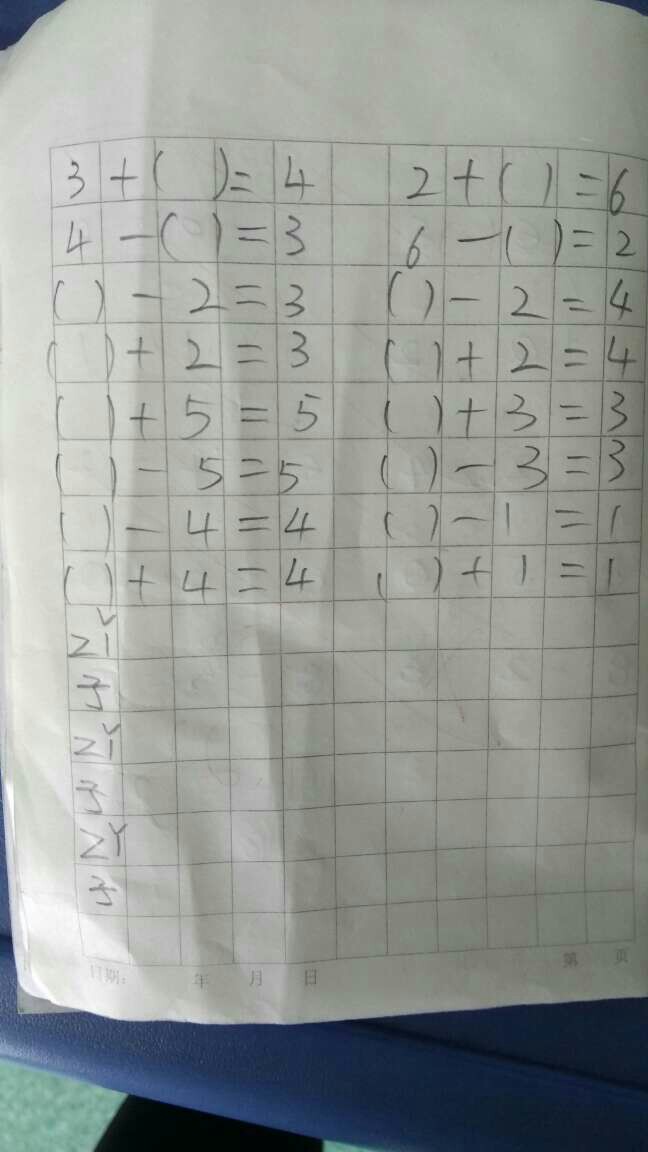 3+( )=4 2+( )=6
4-( )=3 6-( )=2
( )-2=3 ( )-2=4
( )+2=3 ( )+2=4
( )+5=5 ( )+3=3
( )-5=5 ( )-3=3
( )-4=4 ( )-1=1
( )+4=4 ( )+1=1
zǐ
子
zǐ
子
子
日期: 年 月 日 第 页